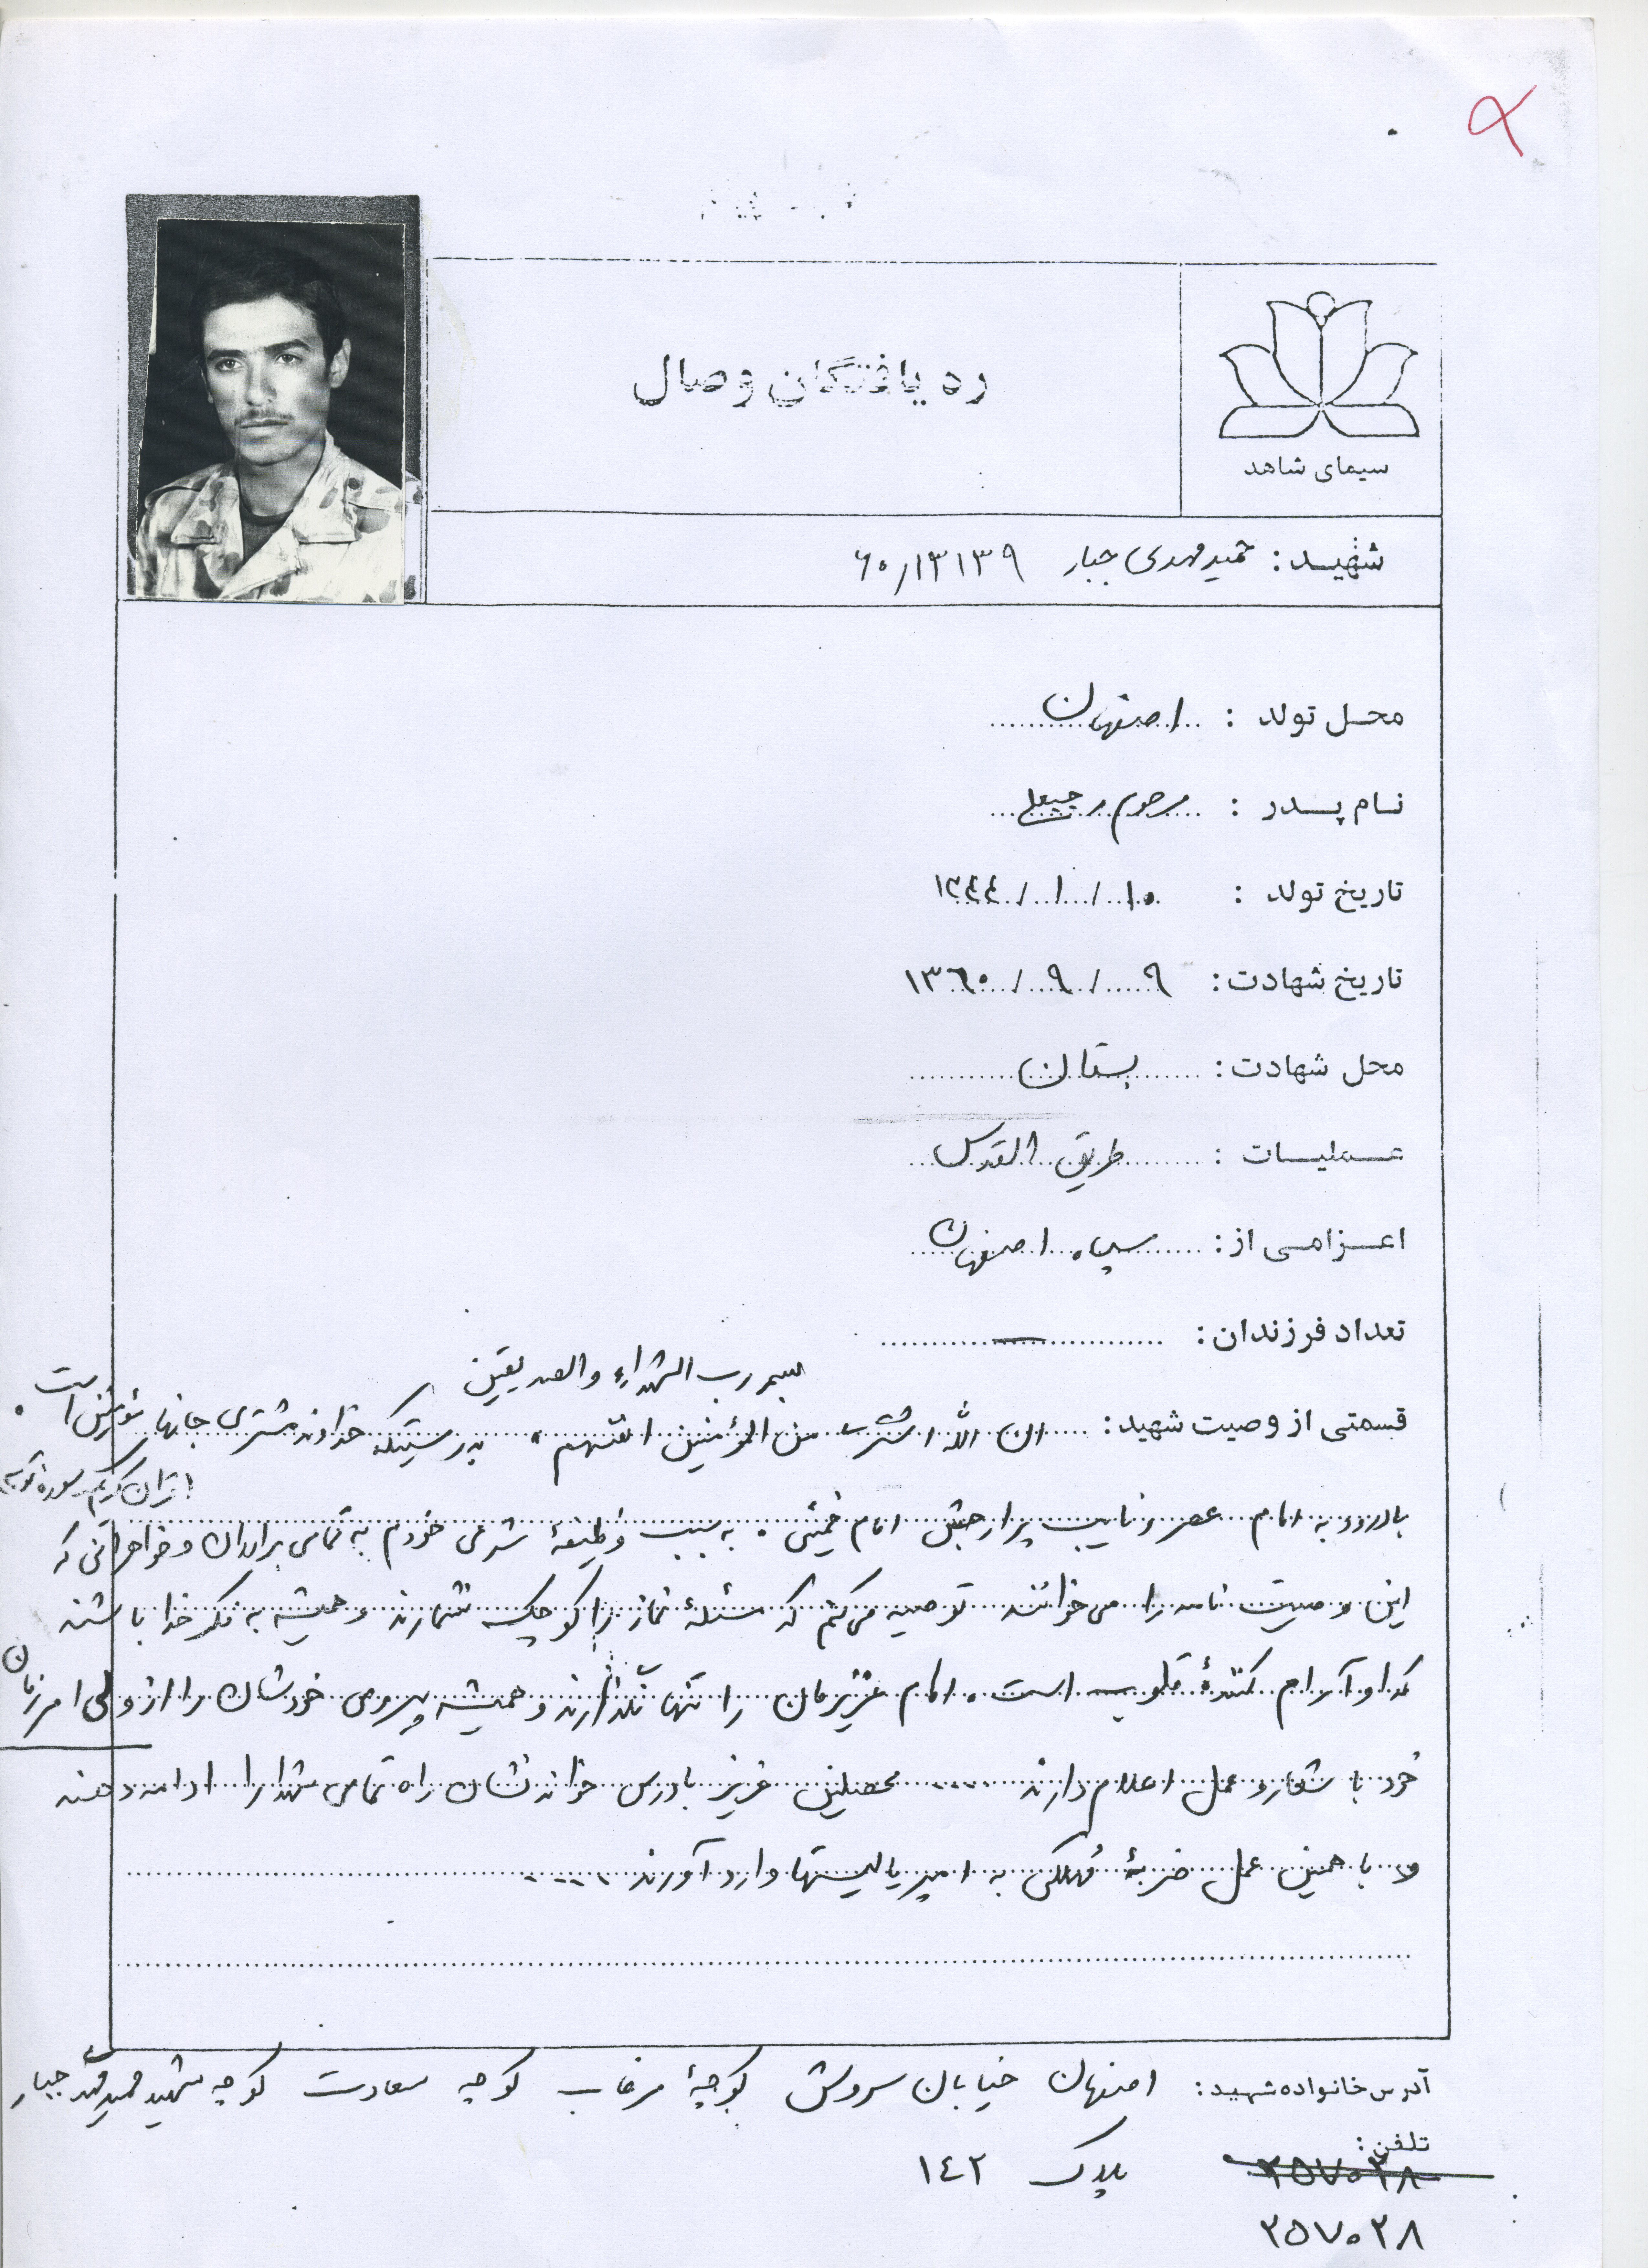 ره یافتگان وصال
سیمای شاهد
شهید: حمید مهدی جبار ۶۰/۱۳۱۳۹
محل تولد : اصفهان
نام پدر : مرحوم رجبعلی
تاریخ تولد : ۱۰/ ۱/ ۱۳۴۴
تاریخ شهادت: ۹/ ۹/ ۱۳۶۰
محل شهادت: بستان
عملیات : طریق القدس
اعزامی از: سپاه اصفهان
تعداد فرزندان: —
بسم رب الشهداء والصدیقین
قسمتی از وصیت شهید: ان الله اشتری من المؤمنین انفسهم. بدرستیکه خداوند مشتری جانهای مؤمنین است.
قرآن کریم سوره توبه
با درود به امام عصر و نایب پر ارجش امام خمینی. به سبب وظیفهٔ شرعی خودم به تمامی برادران و خواهرانی که
این وصیت نامه را می خوانند توصیه می کنم که مسئلهٔ نماز را کوچک نشمارند و همیشه به فکر خدا باشند
که او آرام کنندهٔ قلوب است. امام عزیزمان را تنها نگذارند و همیشه پیروی خودشان را از ولی امر زمان
خود با شعار و عمل اعلام دارند ..... محصلین عزیز با درس خواندنشان راه تمامی شهدا را ادامه دهند
و با همین عمل ضربهٔ مهلکی به امپریالیستها وارد آورند .....
آدرس خانواده شهید: اصفهان خیابان سروش کوچهٔ مرغاب کوچه سعادت کوچه شهید حمید مهدی جبار
تلفن:
۲۵۷۰۲۸ پلاک ۱۴۲
۲۵۷۰۲۸